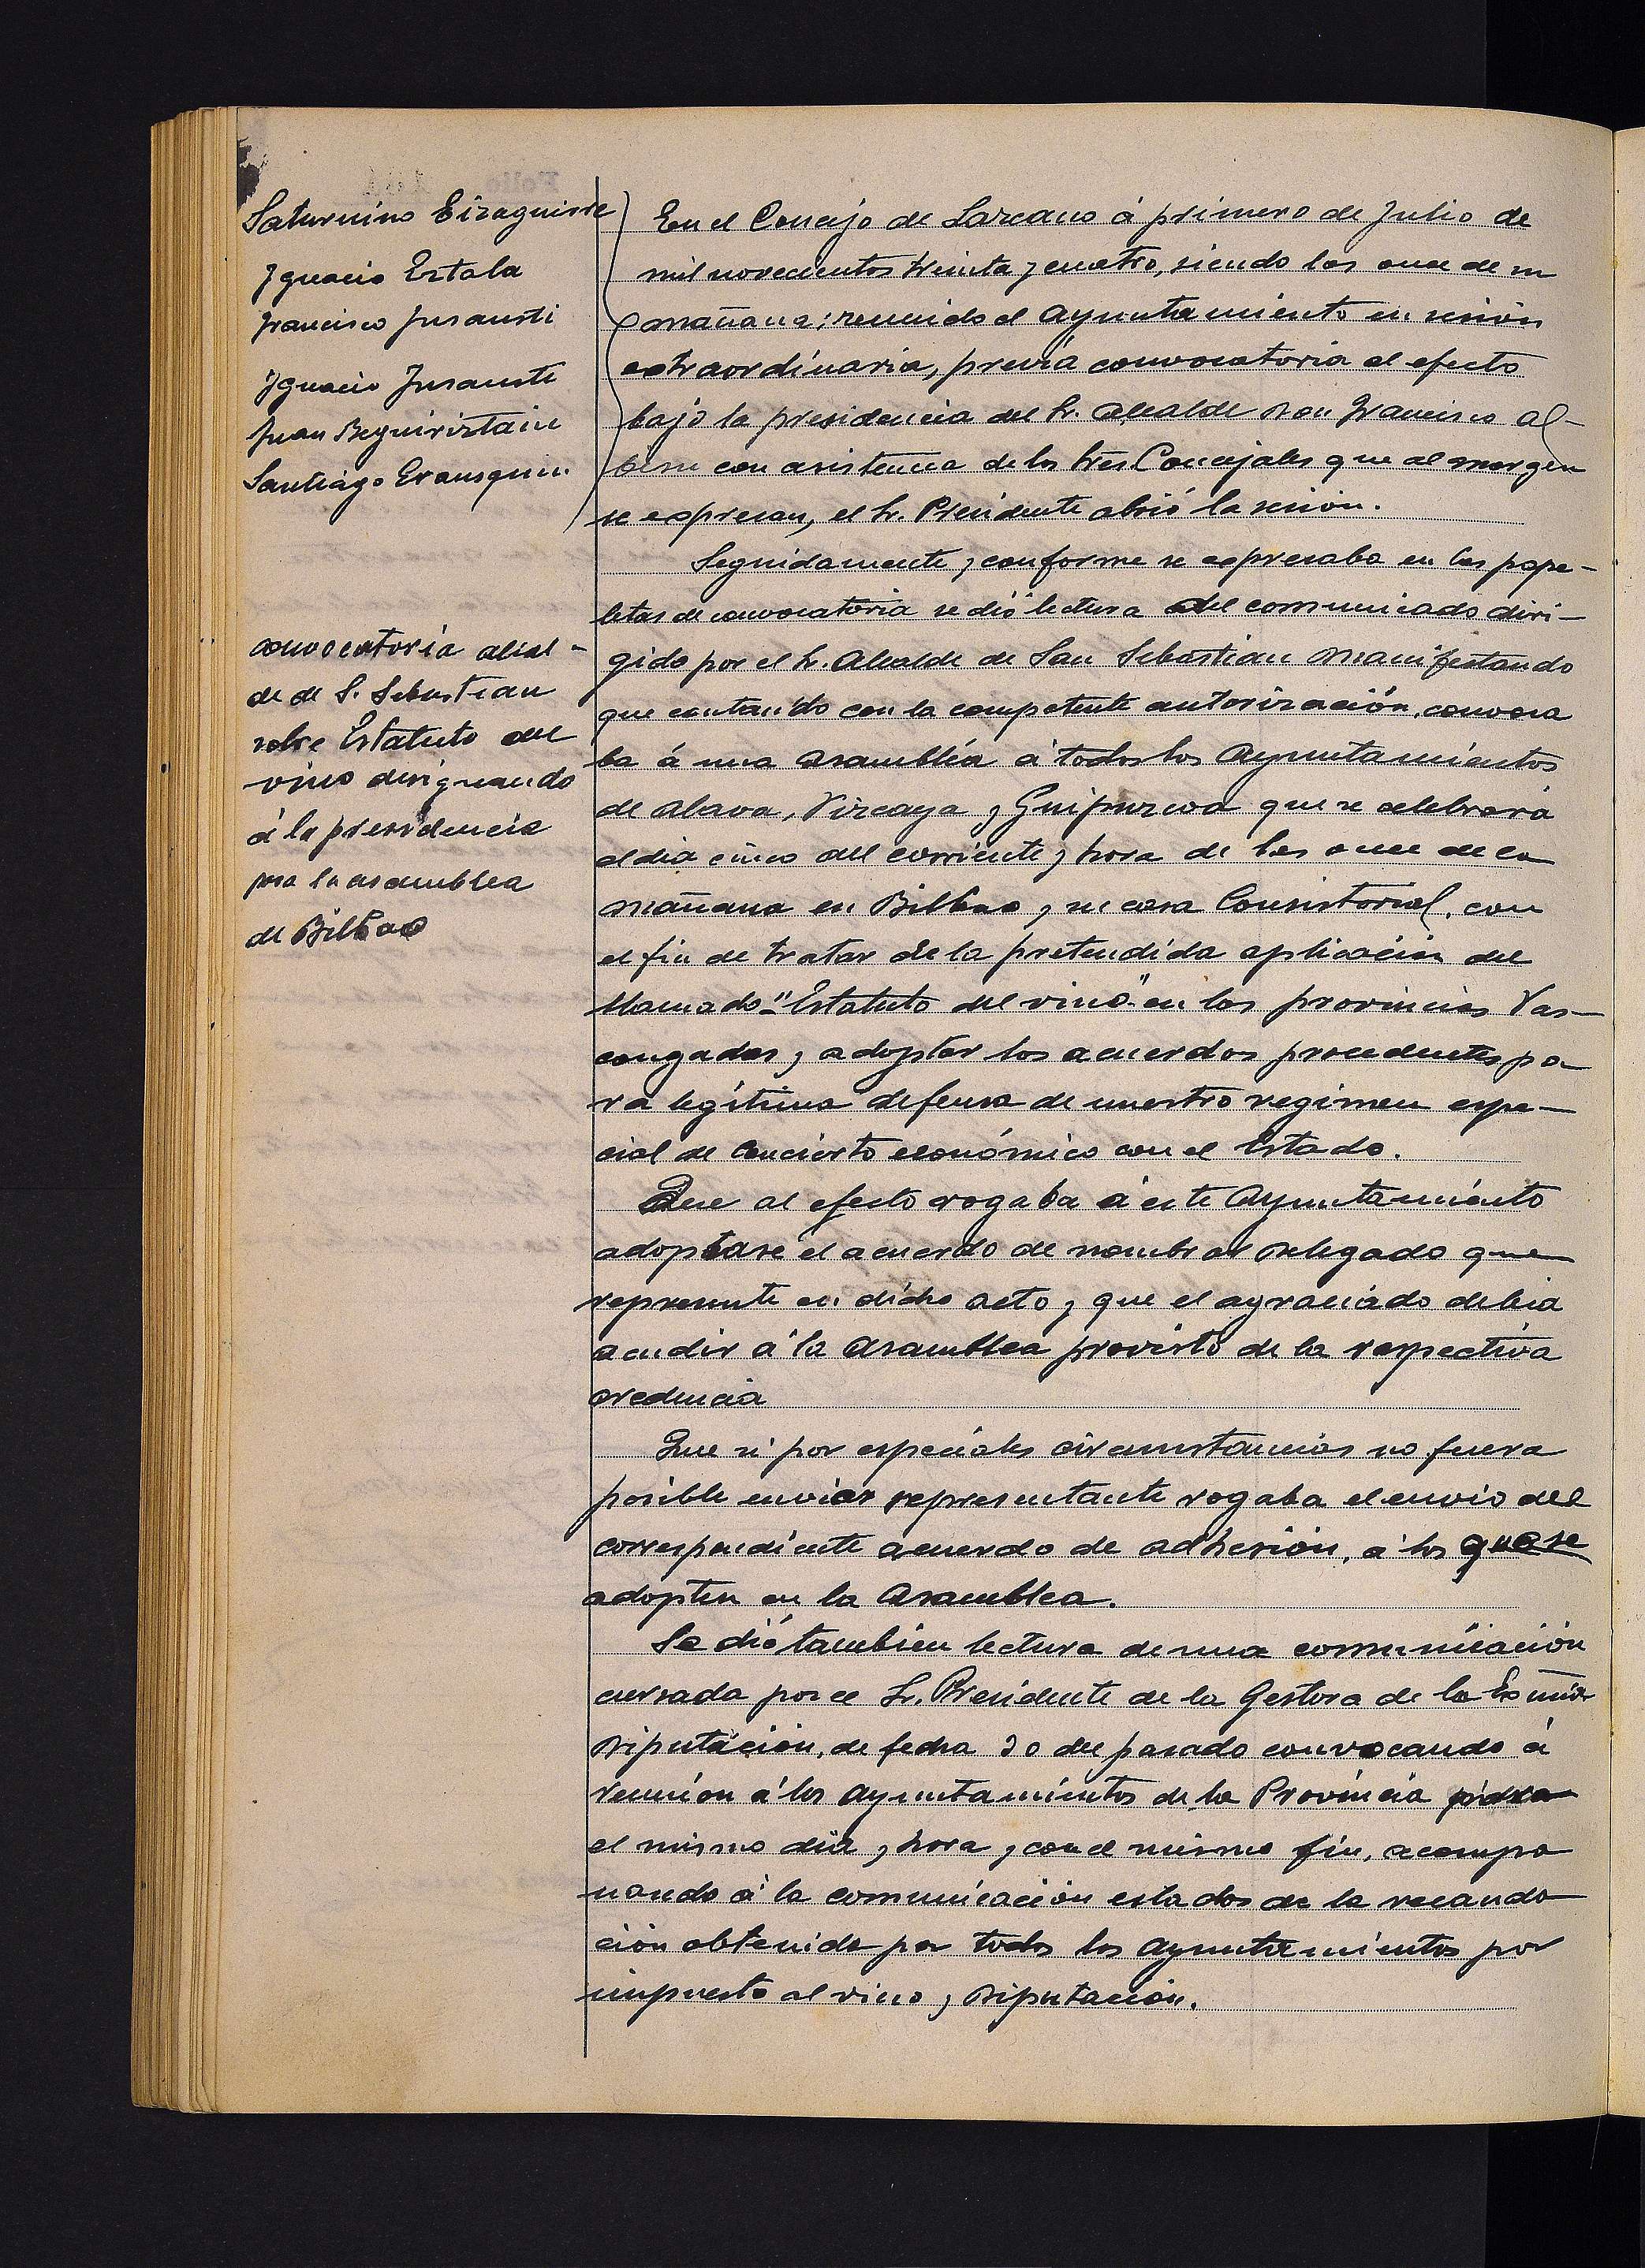 Saturnino Eizaguirre
Ygnacio Estala
Francisco Jusausti
Ygnacio Jusausti
Juan Beguiristain
Santiago Erausquin
convocatoria alcal-
de de S. Sebastian
sobre Estatuto del
vino designando
á la presidencia
para la asamblea
de Bilbao
En el Concejo de Lazcano á primero de Julio de
mil novecientos treinta y cuatro, siendo las once de su
mañana; reunido el Ayuntamiento en sesión
extraordinaria, previa convocatoria al efecto
bajo la presidencia del Sr. Alcalde Don Francisco Al-
con asistencia de los tres Concejales que al margen
se expresan, el Sr. Presidente abrió la sesión.
Seguidamente y conforme se expresaba en las pape-
letas de convocatoria se dió lectura del comunicado diri-
gido por el Sr. Alcalde de San Sebastian manifestando
que contando con la competente autorización, convoca
ba á una asambléa á todos los Ayuntamientos
de Alava, Vizcaya y Guipuzcoa que se celebrará
el dia cinco del corriente y hora de las once de la
mañana en Bilbao y su casa Consistorial, con
el fin de tratar de la pretendida aplicación del
llamado "Estatuto del vino" en las provincias Vas-
congadas y adoptar los acuerdos procedentes pa-
ra legítima defensa de nuestro regimen espe-
cial de Concierto económico con el Estado.
Que al efecto rogaba á este Ayuntamiento
adoptase el acuerdo de nombrar Delegado que
represente en dicho acto y que el agraciado debia
acudir á la Asamblea provisto de la respectiva
credencia
Que si por especiales circunstancias no fuera
posible enviar representante rogaba el envio del
correspondiente acuerdo de adhesión, á los que se
adopten en la Asamblea.
Se dió tambien lectura de una comunicación
cursada por el Sr. Presidente de la Gestora de la Exma
Diputación, de fecha 30 del pasado convocando á
reunion á los Ayuntamientos de la Provincia para
el mismo dia y hora y con el mismo fin, acompa
nando á la comunicación estados de la recauda
ción obtenida por todos los Ayuntamientos por
impuesto al vino y Diputación.